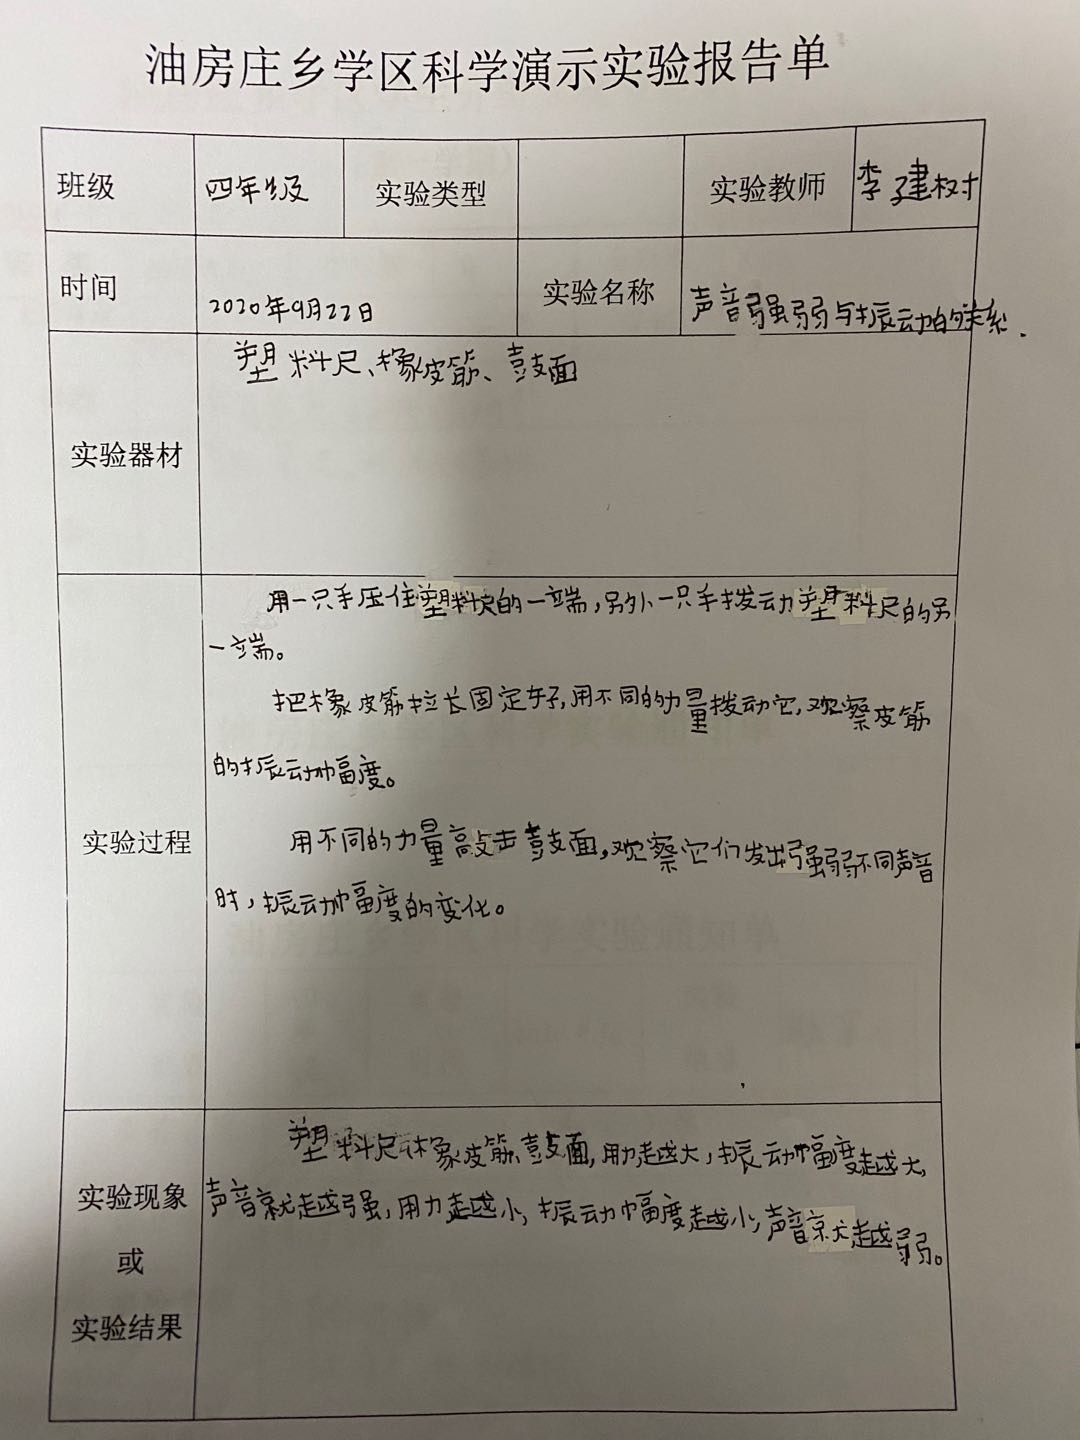 油房庄乡学区科学演示实验报告单
班级 四年级 实验类型 实验教师 李建树
时间 2020年9月22日 实验名称 声音强弱与振动的关系.
实验器材 塑料尺、橡皮筋、鼓面
实验过程
用一只手压住塑料尺的一端,另外一只手拨动塑料尺的另
一端。
把橡皮筋拉长固定好,用不同的力量拨动它,观察皮筋
的振动幅度。
用不同的力量敲击鼓面,观察它们发出强弱不同声音
时,振动幅度的变化。
实验现象
或
实验结果
塑料尺、橡皮筋、鼓面,用力越大,振动幅度越大,
声音就越强,用力越小,振动幅度越小,声音就越弱。